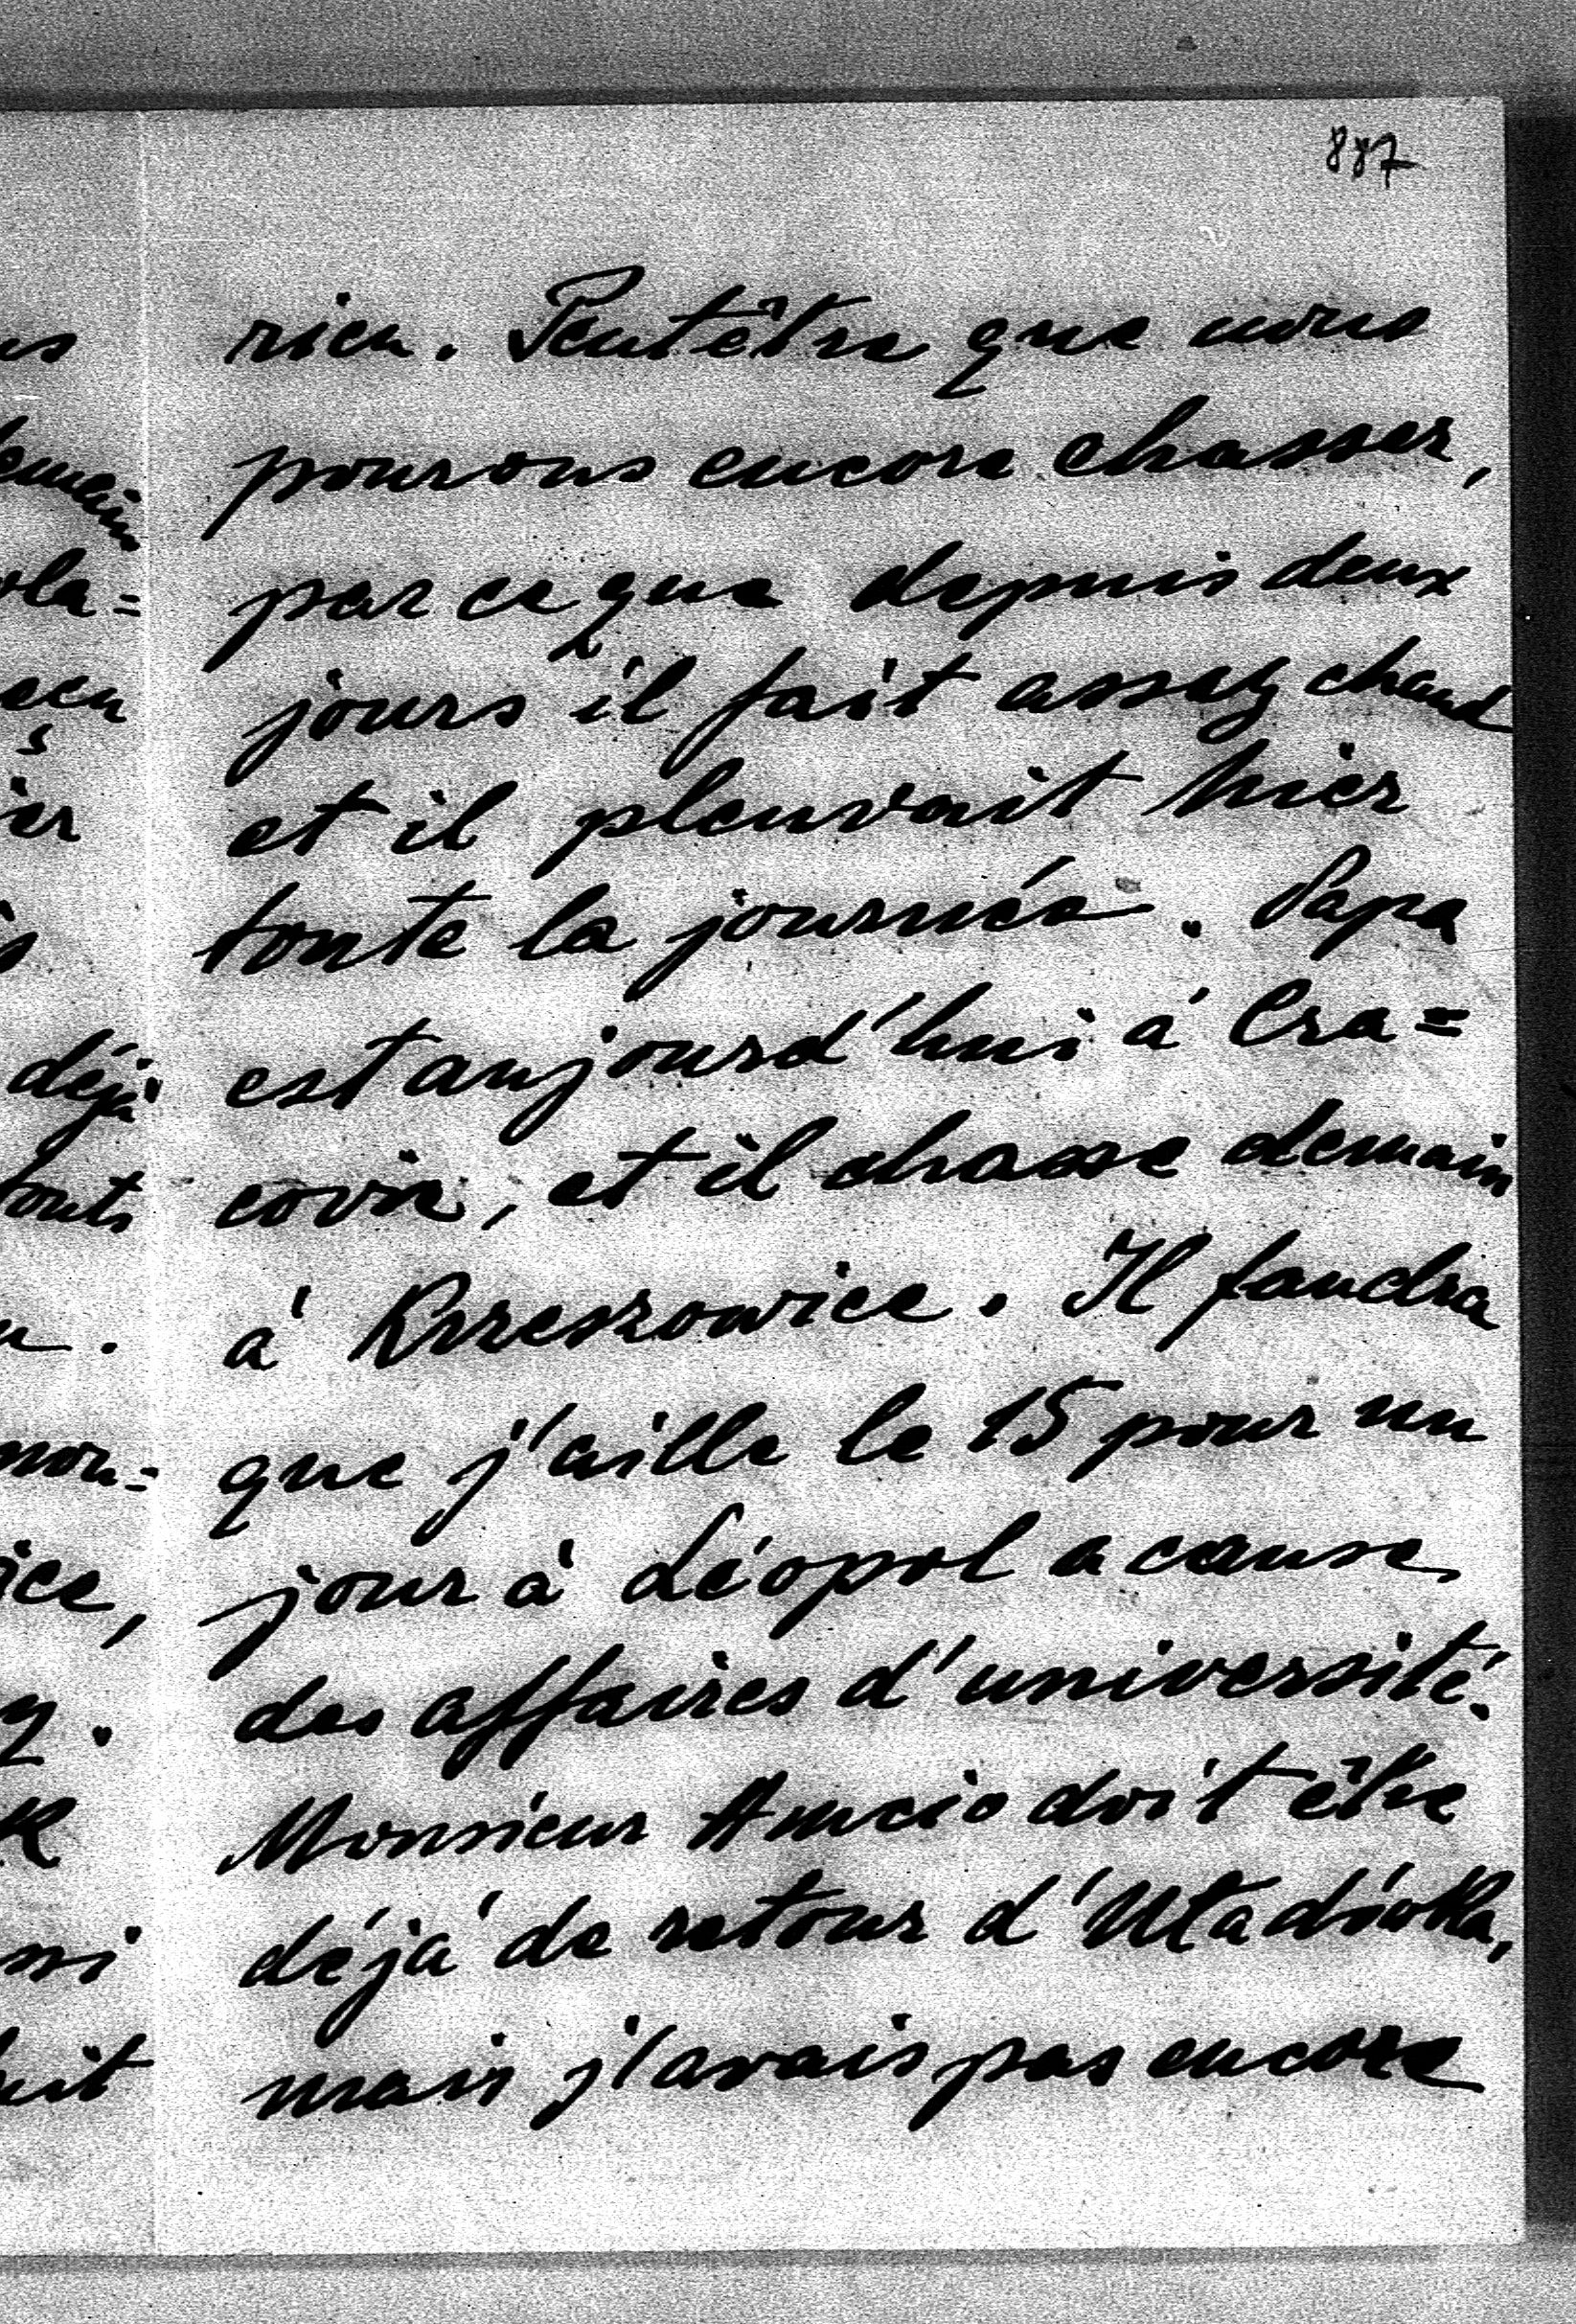 887
rien. Peutêtre que nous
pourons encore chasser,
par ce que depuis deux
jours il fait assez chaud
et il pleuvait hier
toute la journée. Papa
est aujourd'hui à Cra=
covie, et il chasse demain
à Krzeszowice. Il faudra
que j'aille le 15 pour un
jour à Léopol a cause
des affaires d'université.
Monsieur doit être
déjà de retour d'Uładówka,
mais j'avais pas encore